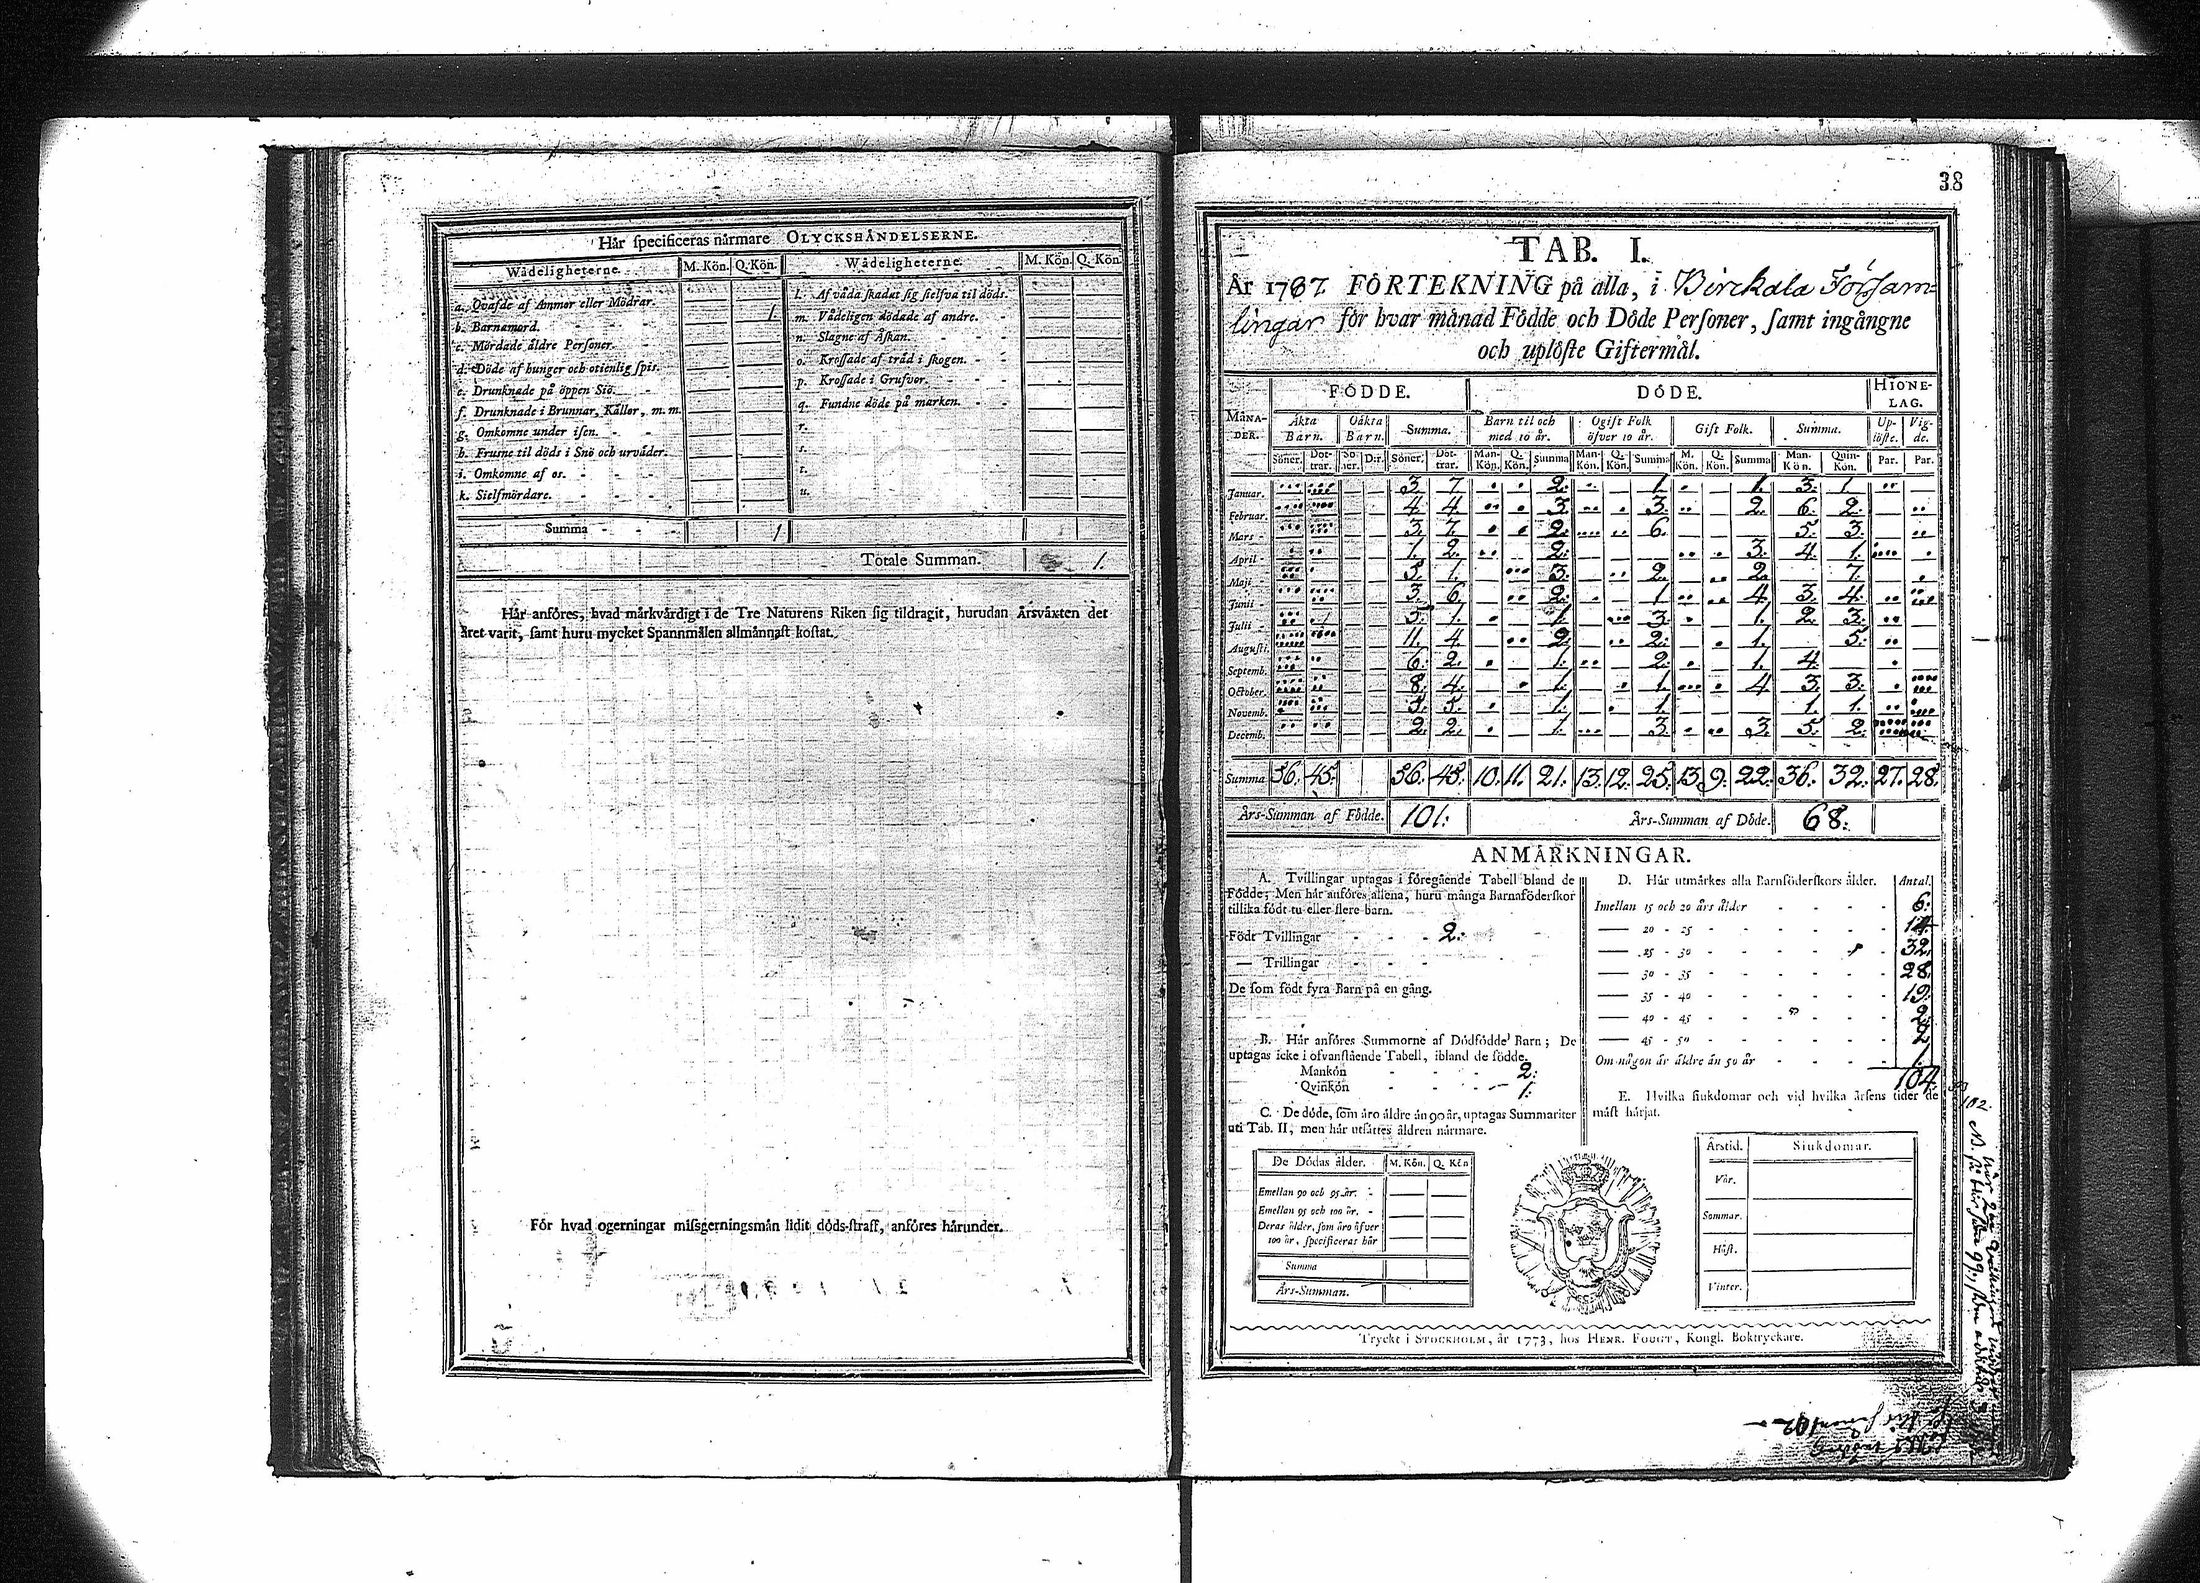 38
Hår specificeras nårmare OLYCKSHÅNDELSERNE.
Wådeligheterne. M. Kön. Q. Kön. Wådeligheterne. M. Kön. Q. Kön.
a. Qvafde af Ammor eller Mödrar. — — l. Af våda skadat sig sielfva til döds. — —
b. Barnamord. — 1. m. Vådeligen dödade af andre. — —
c. Mördade äldre Personer. — — n. Slagne af Åskan. — —
d. Döde af hunger och otienlig spis. — — o. Krossade af träd i skogen. — —
e. Drunknade på öppen Siö. — — p. Krossade i Grufvor. — —
f. Drunknade i Brunnar, Källor, m. m. — — q. Fundne döde på marken. — —
g. Omkomne under isen. — — r. — —
h. Frusne til döds i Snö och urväder. — — s. — —
i. Omkomne af os. — — t. — —
k. Sielfmördare. — — u. — —
Summa 1
Totale Summan. 1.
Hår anföres, hvad mårkvårdigt i de Tre Naturens Riken sig tildragit, hurudan Årsvåxten det
året varit, samt huru mycket Spannmålen allmånnast kostat.
För hvad ogerningar missgerningsmån lidit döds-straff, anföres hårunder.
TAB. I.
År 1787. FÖRTEKNING på alla, i Birckala Församlingar för hvar månad Födde och Döde Personer, samt ingångne
och uplöste Giftermål.
MÅNADER. FÖDDE. DÖDE. HIONELAG.
Äkta Barn. Oäkta Barn. Summa. Barn til och med 10 år. Ogift Folk öfver 10 år. Gift Folk. Summa. Uplöste. Vigde.
Söner. Döttrar. Söner. D:r. Söner. Döttrar. Man-Kön. Q. Kön. Summa Man-Kön. Q. Kön. Summa M. Kön. Q. Kön. Summa Man-Kön. Quin-Kön. Par. Par.
Januar. 3. 7. 2. 1. 1. 3. 1
Februar. 4. 4. 3. 3. 2. 6. 2.
Mars 3. 7. 2. 6. 5. 3.
April 1. 2. 2. 3. 4. 1.
Maji 5. 1. 3. 2. 2. 7.
Junii 3. 6. 2. 1. 4. 3. 4.
Julii 5. 1. 1. 3. 1. 2. 3.
Augusti. 11. 4. 2. 2. 1. 5.
Septemb. 6. 2. 1. 2. 1. 4.
October. 8. 4. 1. 1. 4 3. 3.
Novemb. 5. 5. 1. 1. 1. 1.
Decemb. 2. 2. 1. 3. 3. 5. 2.
Summa 56. 45. 56. 45. 10. 11. 21. 13. 12. 25. 13. 9. 22. 36. 32. 27. 28.
Års-Summan af Födde. 101. Års-Summan af Döde. 68.
ANMÄRKNINGAR.
A. Tvillingar uptagas i föregående Tabell bland de
Födde; Men hår anföres allena, huru många Barnaföderskor
tillika födt tu eller flere barn.
Födt Tvillingar 2.
— Trillingar
De som födt fyra Barn på en gång.
B. Hår anföres Summorne af Dödfödde Barn; De
uptagas icke i ofvanstående Tabell, ibland de födde.
Mankön 2:
Qvinkön 1:
C. De döde, som åro åldre ån 90 år, uptagas Summariter
uti Tab. II, men hår utsåttes åldren nårmare.
De Dödas ålder. M. Kön. Q. Kön
Emellan 90 och 95 år. — —
Emellan 95 och 100 år. — —
Deras ålder, som åro öfver
100 år, specificeras hår — —
Summa
Års-Summan.
D. Hår utmårkes alla Barnföderskors ålder. Antal.
Imellan 15 och 20 års ålder 6.
— 20 - 25 14.
— 25 - 30 32.
— 30 - 35 28.
— 35 - 40 19.
— 40 - 45 2.
— 45 - 50 2
Om någon år åldre ån 50 år 1.
104.
102
E. Hvilka siukdomar och vid hvilka årsens tider de
måst hårjat.
Årstid. Siukdomar.
Vår.
Sommar.
Höst.
Vinter.
Tryckt i STOCKHOLM, år 1773, hos HENR. FOUGT, Kongl. Boktryckare.